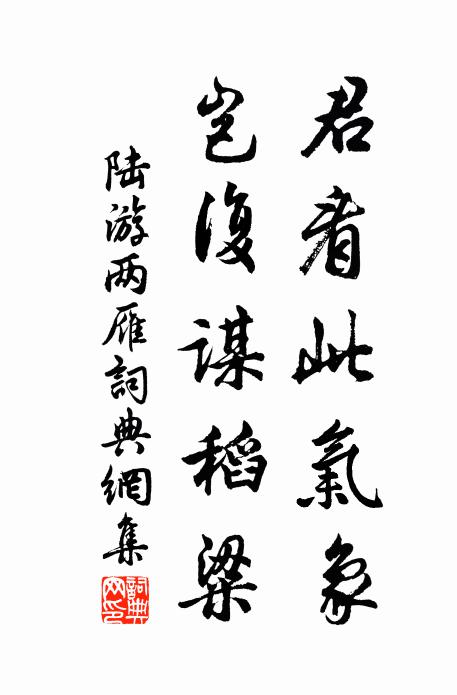 君看此氣象
豈復謀稻粱
陆游两雁詞典網集
詞典
网印